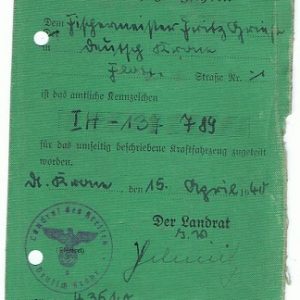 Dem Fischermeister Fritz Griese
in Deutsch Krone
Straße Nr. %
ist das amtliche Kennzeichen
IH - 137 789
für das umseitig beschriebene Kraftfahrzeug zugeteilt
worden.
Dt. Krone, den 15. April 1940
Der Landrat
Landrat des Kreises
Deutsch Krone